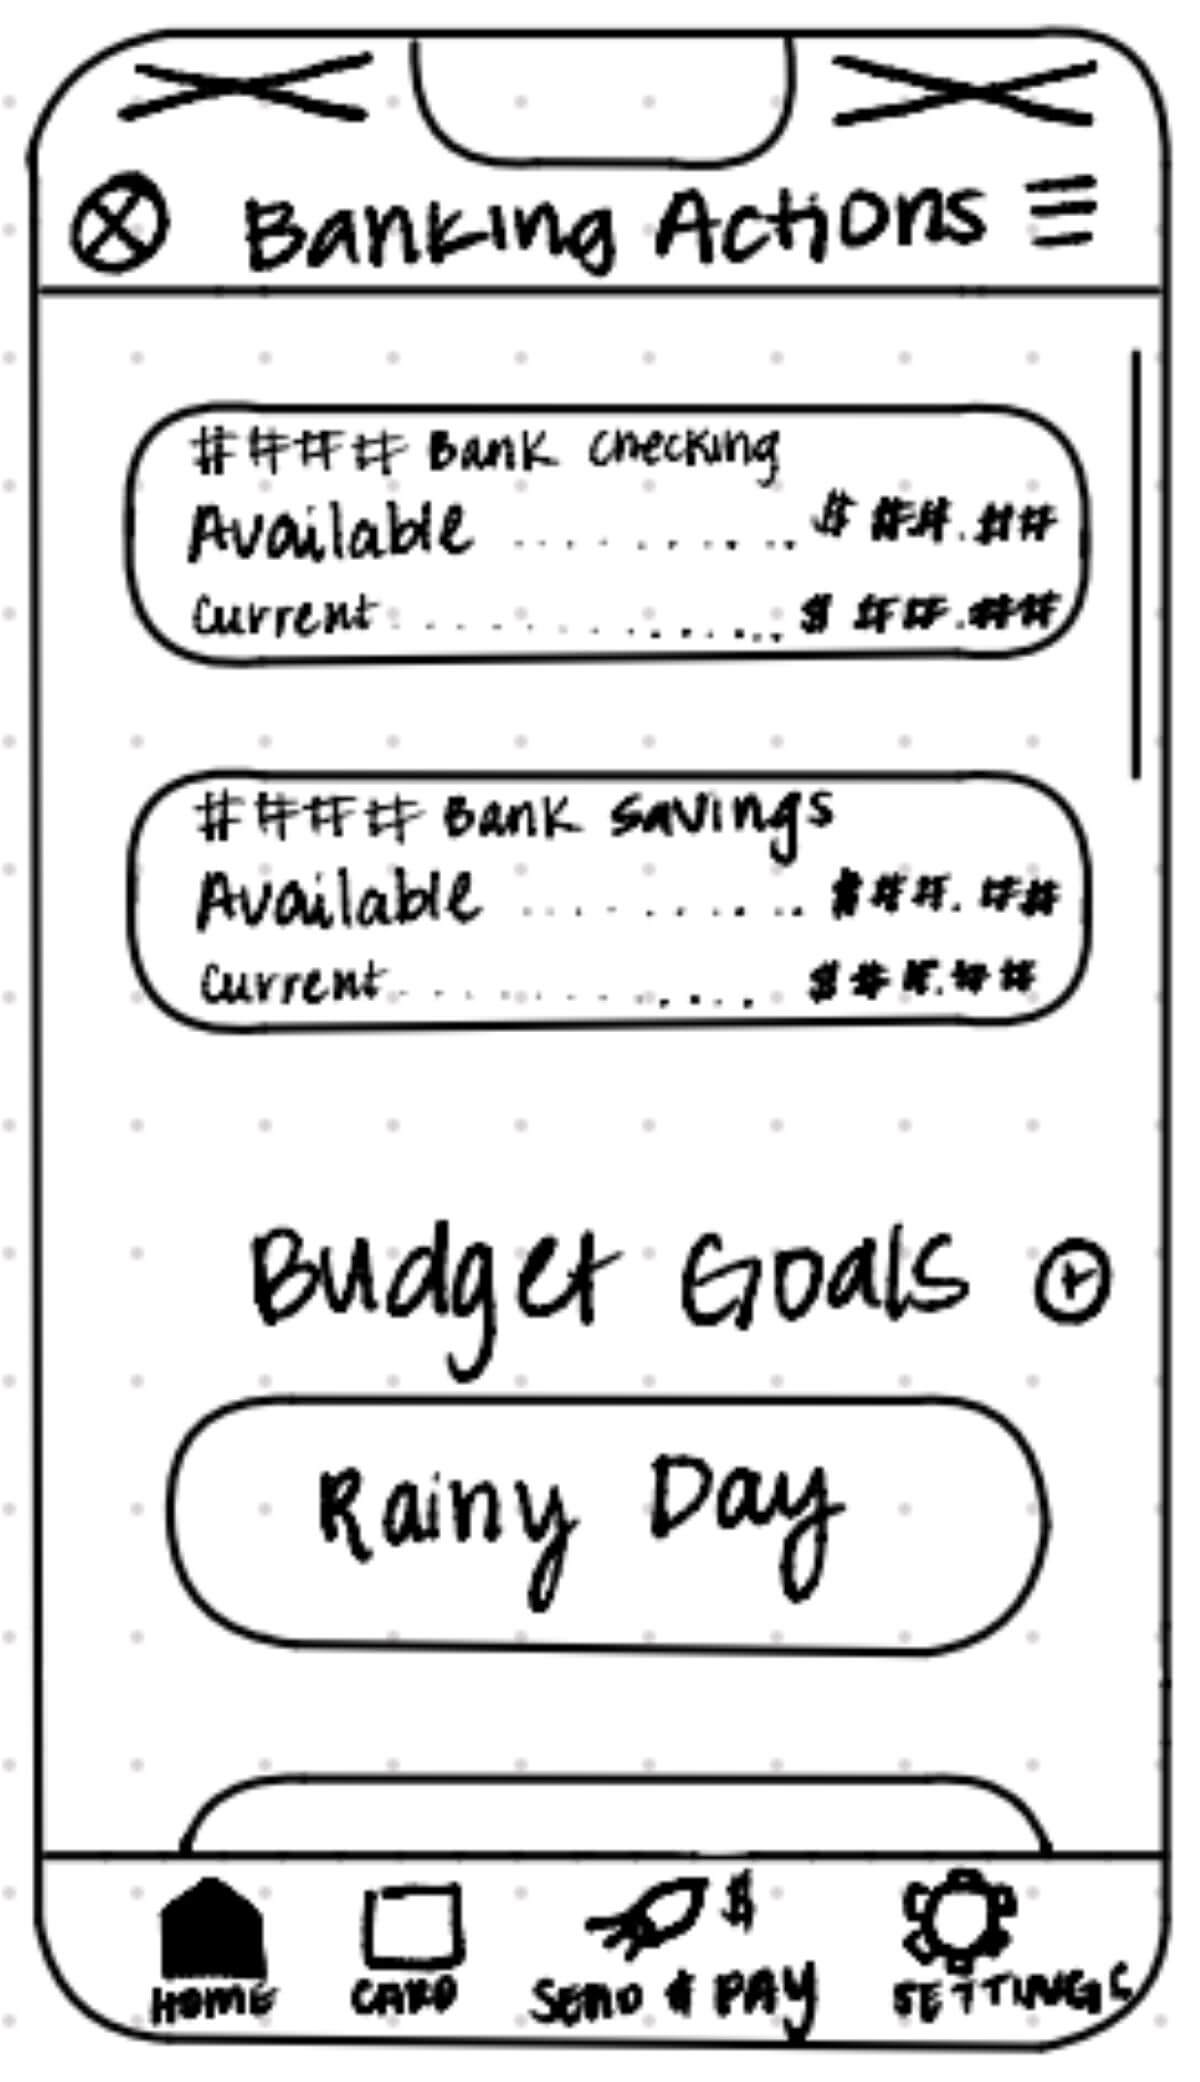 Banking Actions
#### Bank checking
Available .......... $ ##.##
Current ............. $ ##.##
#### Bank savings
Available .......... $##.##
Current ............. $##.##
Budget Goals
Rainy Day
HOME CARD SEND & PAY SETTINGS
$